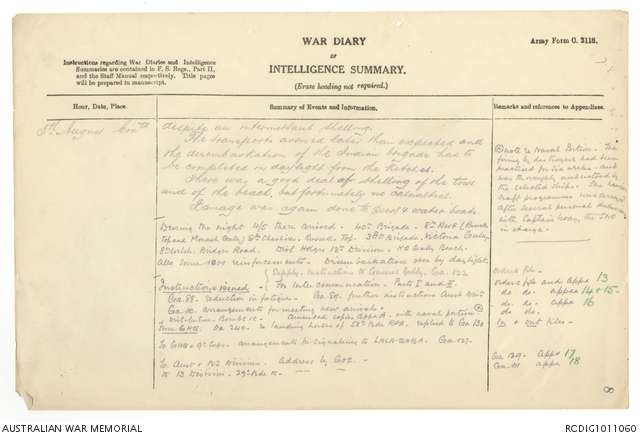 WAR DIARY
or
INTELLIGENCE SUMMARY.
(Erase heading not required.)
Army Form C. 2118.
Instructions regarding War Diaries and Intelligence
Summaries are contained in F. S. Regs., Part II,
and the Staff Manual respectively. Title pages
will be prepared in manuscript.
Hour, Date, Place.
Summary of Events and Information.
Remarks and references to Appendices.
5th August Contd
despite an intermittent shelling.
The transports arrived later than expected and
the disembarkation of the Indian brigade had to
be completed in daylight from the ketches.
There was a good deal of shelling of the cove
and of the beach, but fortunately no casualties.
Damage was again done to quest & water boats
During the night 4/5 there arrived. 40th Brigade. 8th
8th Cheshires. 38th Brigade, Victoria Gully.
8th Welch. Bridges Road. Dist. Hdqrs 13th Division. HQ Beach.
Also some 1800 reinforcements. Disembarkation seen by daylight.
Supply. Instructions to General Ga. 122
Instructions issued. For Intercommunication. Part I and II.
Gia. 88. reduction in fatigues. Ga. 89. further instructions Aust Divn
Gia. 90. arrangements for meeting new arrivals.
Distribution Bombs. Amended copies with naval portion
from GHQ. Oa 240. re landing horses of Bde RFA. replied to Gia 130
To GHQ & 9th Corps. arrangements for signalling to Ga. 127.
To Aust & NZ Division. Address by GOC.
to 13 Division. 29th Bde
note re Naval Portion. The
firing by destroyers had been
practised for two weeks and
was thoroughly understood by
the selected ships. The
programme was arranged
after several personal
with Captain the SNO
in charge.
orders file
orders file and Appx 13
do. do. appx 14 & 15
do. do. appx 16
do. do.
In & out files.
Gia 129. Appx 17
Gia. appx 18
8
AUSTRALIAN WAR MEMORIAL
RCDIG1011060